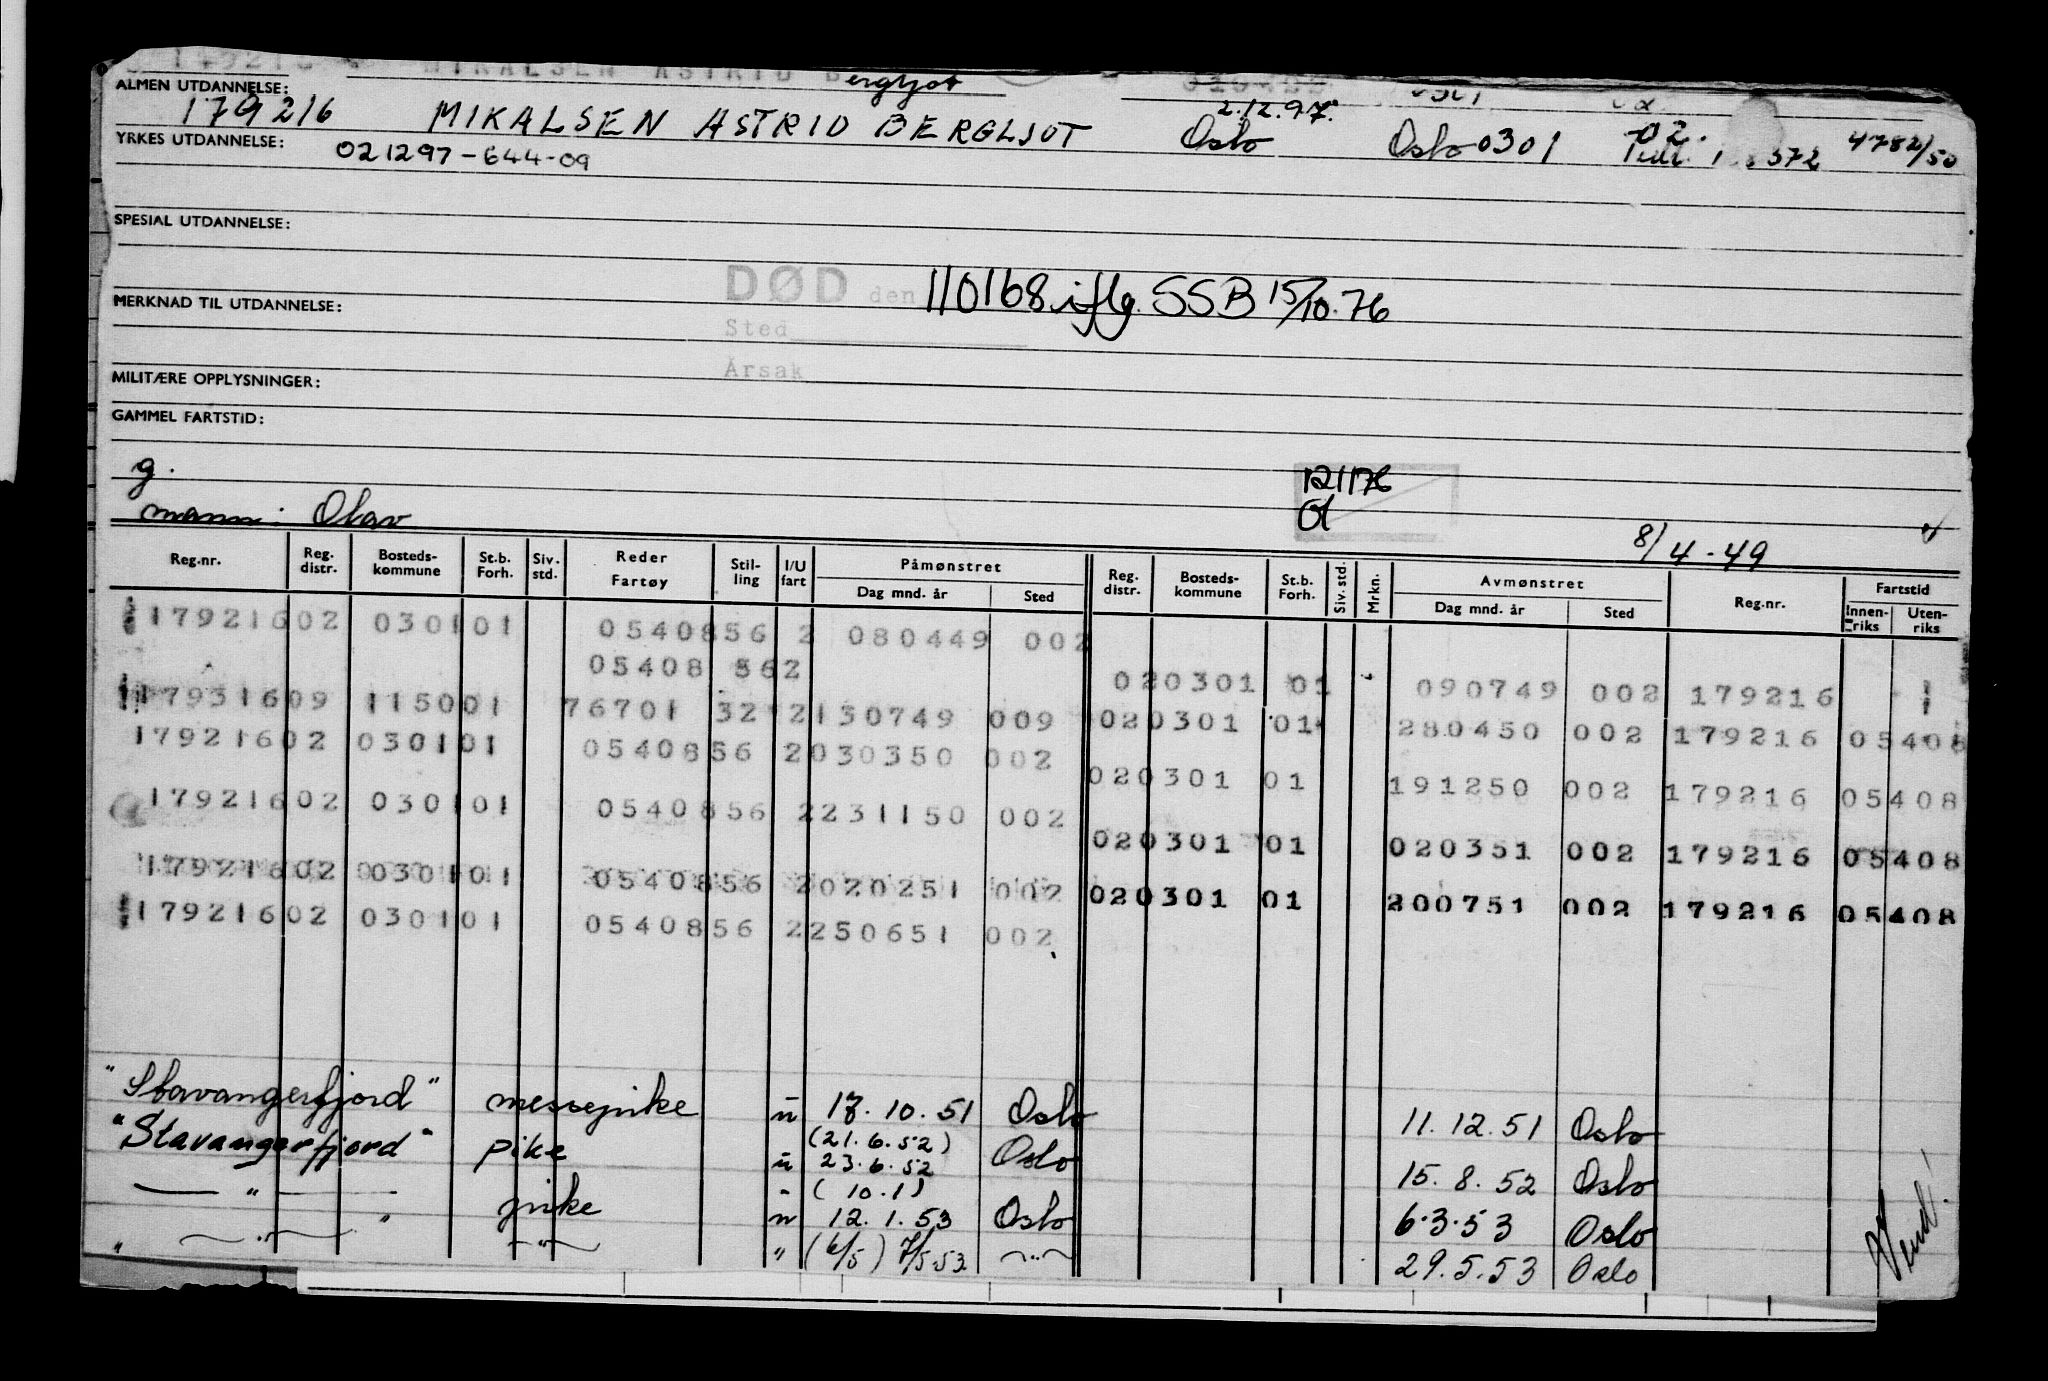 MIKALSEN ASTRID Bergljot
ALMEN UTDANNELSE:
179216 MIKALSEN ASTRID BERGLJOT 2.12.97. Oslo Oslo 0301 02. 372 4782/50
YRKES UTDANNELSE: 021297-644-09
SPESIAL UTDANNELSE:
DØD den 110168 iflg. SSB 15/10.76
MERKNAD TIL UTDANNELSE:
Sted
Årsak
MILITÆRE OPPLYSNINGER:
GAMMEL FARTSTID:
g. 121176
mann: Olav
8/4-49
Reg.nr. Reg. distr. Bosteds- kommune St.b. Forh. Siv. std. Reder Fartøy Stil- ling I/U fart Påmønstret Dag mnd. år Sted Reg. distr. Bosteds- kommune St.b. Forh. Siv. std. Mrkn. Avmønstret Dag mnd. år Sted Reg.nr. Fartstid Innen- riks Uten- riks
179216 02 0301 01 05408 56 2 080449 002
05408 562 020301 01 090749 002 179216
179316 09 1150 01 76701 32 2 130749 009 020301 01 280450 002 179216 05408
179216 02 0301 01 05408 56 2 030350 002
020301 01 191250 002 179216 05408
179216 02 0301 01 05408 56 2 231150 002
020301 01 020351 002 179216 05408
179216 02 0301 01 05408 56 2 020251 002 020301 01 200751 002 179216 05408
179216 02 0301 01 05408 56 2 250651 002
"Stavangerfjord" messepike u 18.10.51 Oslo 11.12.51 Oslo
"Stavangerfjord" pike u (21.6.52) 23.6.52 Oslo 15.8.52 Oslo
— " — pike " (10.1) 12.1.53 Oslo 6.3.53 Oslo
" — " — — " — " (6/5) 7/5.53 — " — 29.5.53 Oslo
Vend!